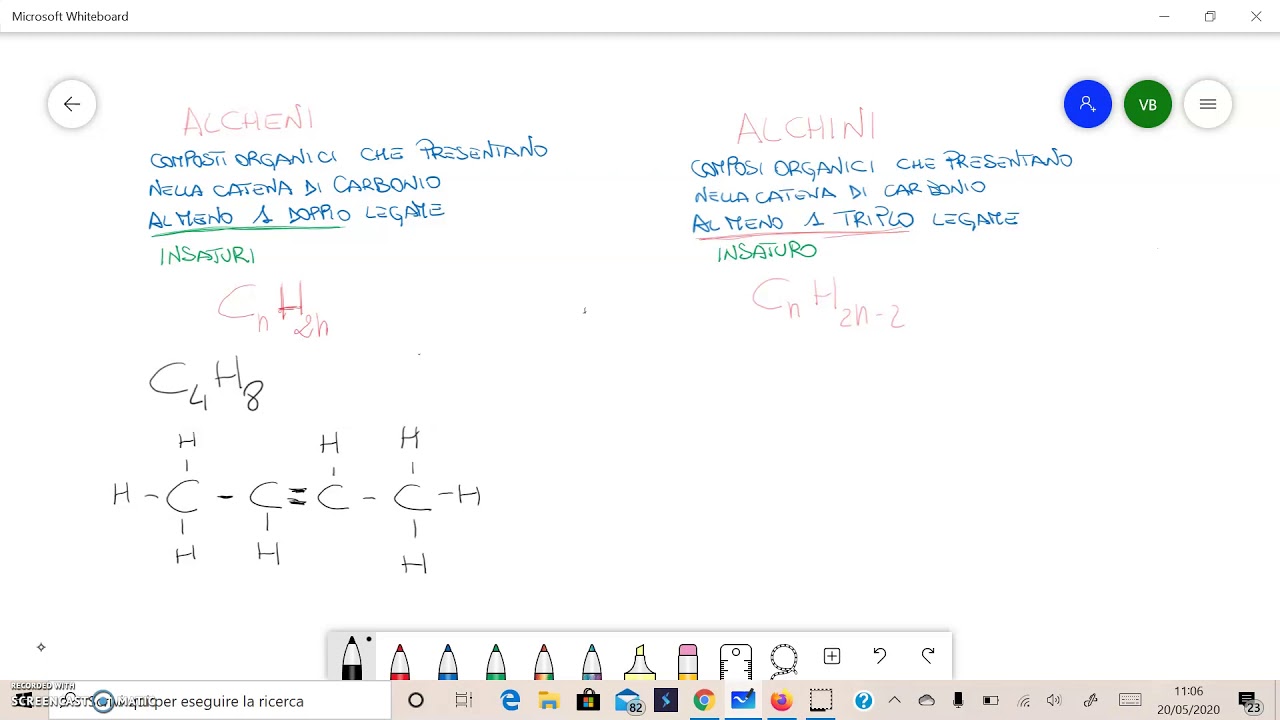 Microsoft Whiteboard
VB
ALCHENI
COMPOSTI ORGANICI CHE PRESENTANO
NELLA CATENA DI CARBONIO
ALMENO 1 DOPPIO LEGAME
INSATURI
CnH2n
C4H8
H H H
H - C - C = C - C - H
H H H
ALCHINI
COMPOSI ORGANICI CHE PRESENTANO
NELLA CATENA DI CARBONIO
ALMENO 1 TRIPLO LEGAME
INSATURO
CnH2n-2
RECORDED WITH
SCREENCAST MATIC
per eseguire la ricerca
82
11:06
20/05/2020
23